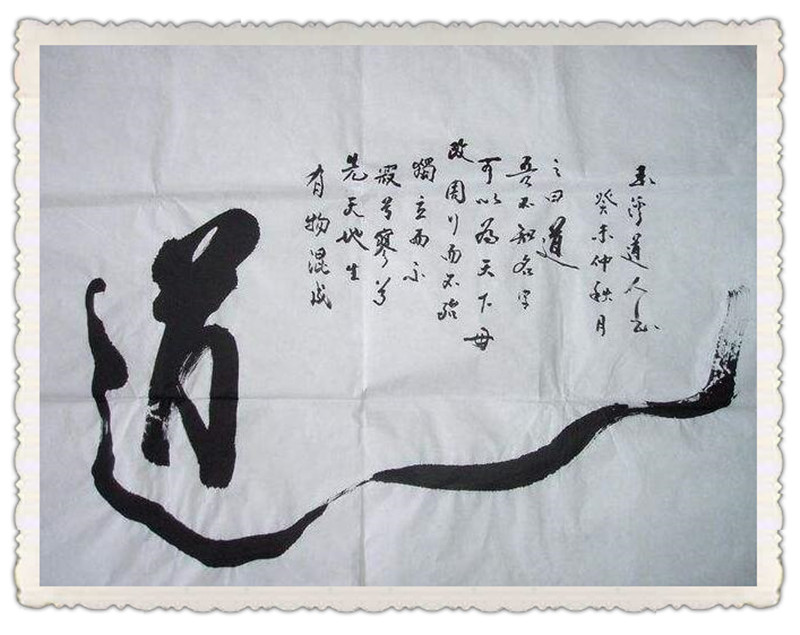 道
有物混成
先天地生
寂兮寥兮
獨立而不
改周行而不殆
可以為天下母
吾不知名字
之曰道
癸未仲秋月
道人书